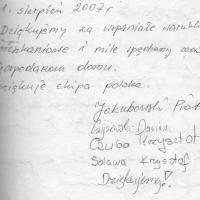 1. sierpień 2007r
Dziękujemy za wspaniałe warunki
mieszkaniowe i mile spędzony czas
gospodarzom domu.
Dziękuje ekipa polska.
Jakubowski Piotr
Damian
Czuba Krzysztof
Sołowa Krzysztof
Dziękujemy!